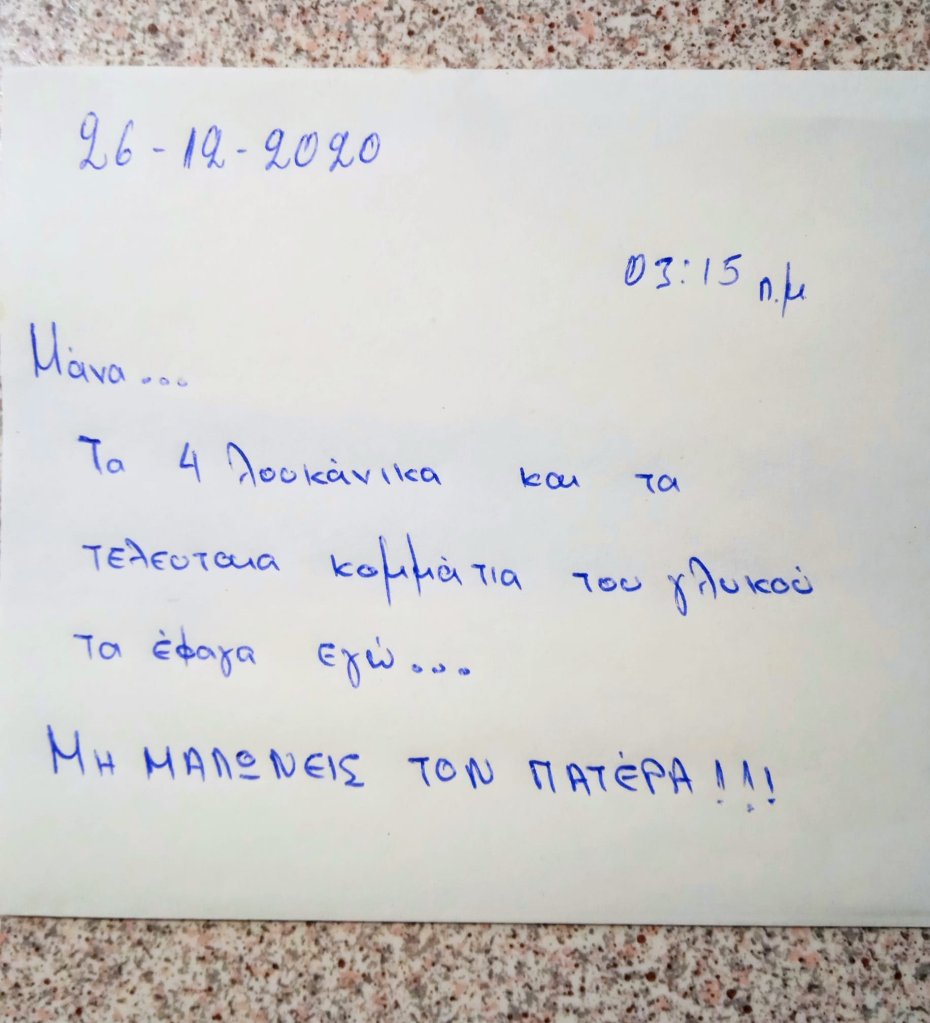 26-12-2020
03:15 π.μ
Μάνα...
Τα 4 λουκάνικα και τα
τελευταια κομμάτια του γλυκού
τα έφαγα εγώ...
ΜΗ ΜΑΛΩΝΕΙΣ ΤΟΝ ΠΑΤΈΡΑ!!!